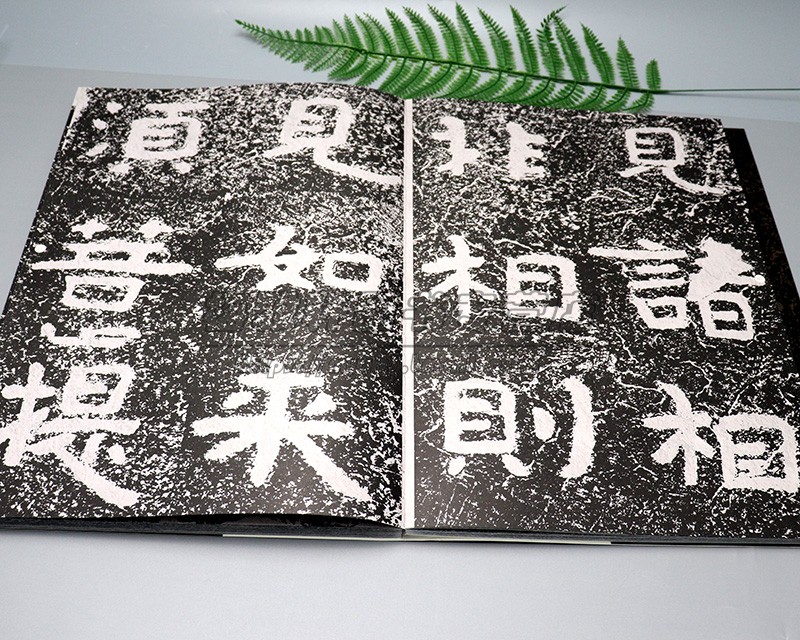 見諸相
非相則
見如來
須菩提